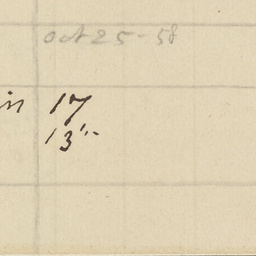 Oct 25-58
in 17
13"